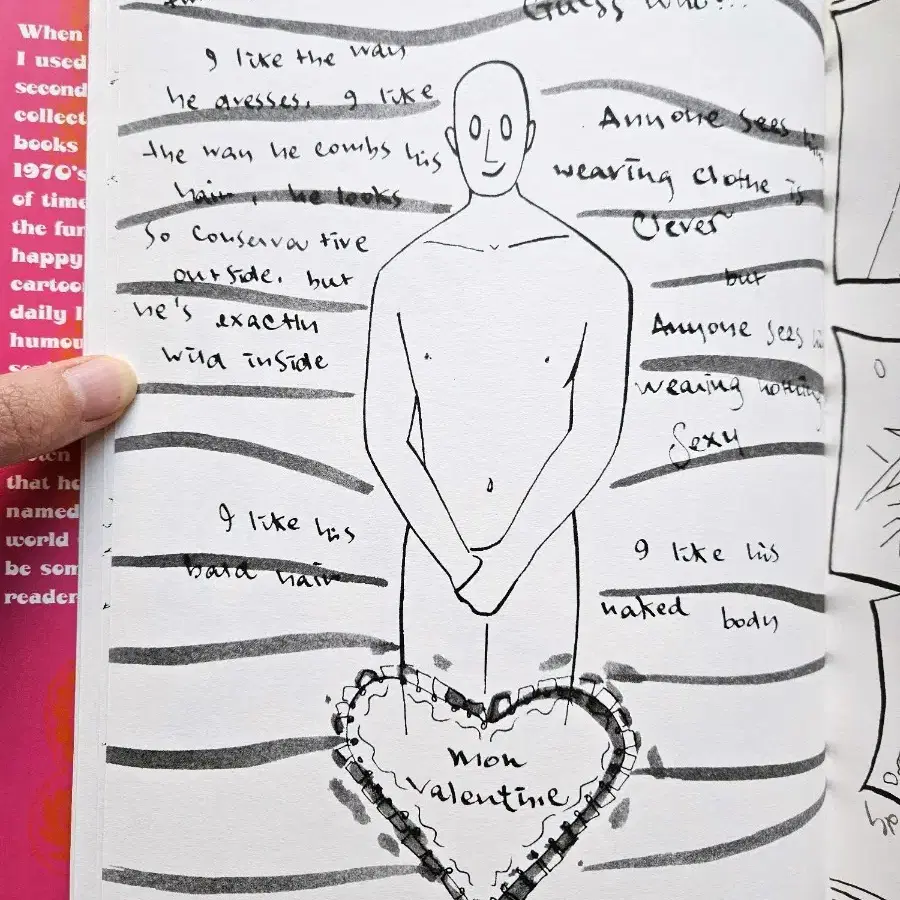 When
I used
second
collect
books
1970's
of time
the fun
happy
cartoo
daily l
humou
that ho
named
world
be som
reader
Guess who!..
I like the way
he dresses. I like
the way he combs his
hair, he looks
So conservative
outside. but
he's exactly
wild inside
I like his
bald hair
Anyone sees him
wearing clothe is
Clever
but
Anyone sees hi
wearing nothing
Sexy
I like his
naked body
mon
valentine